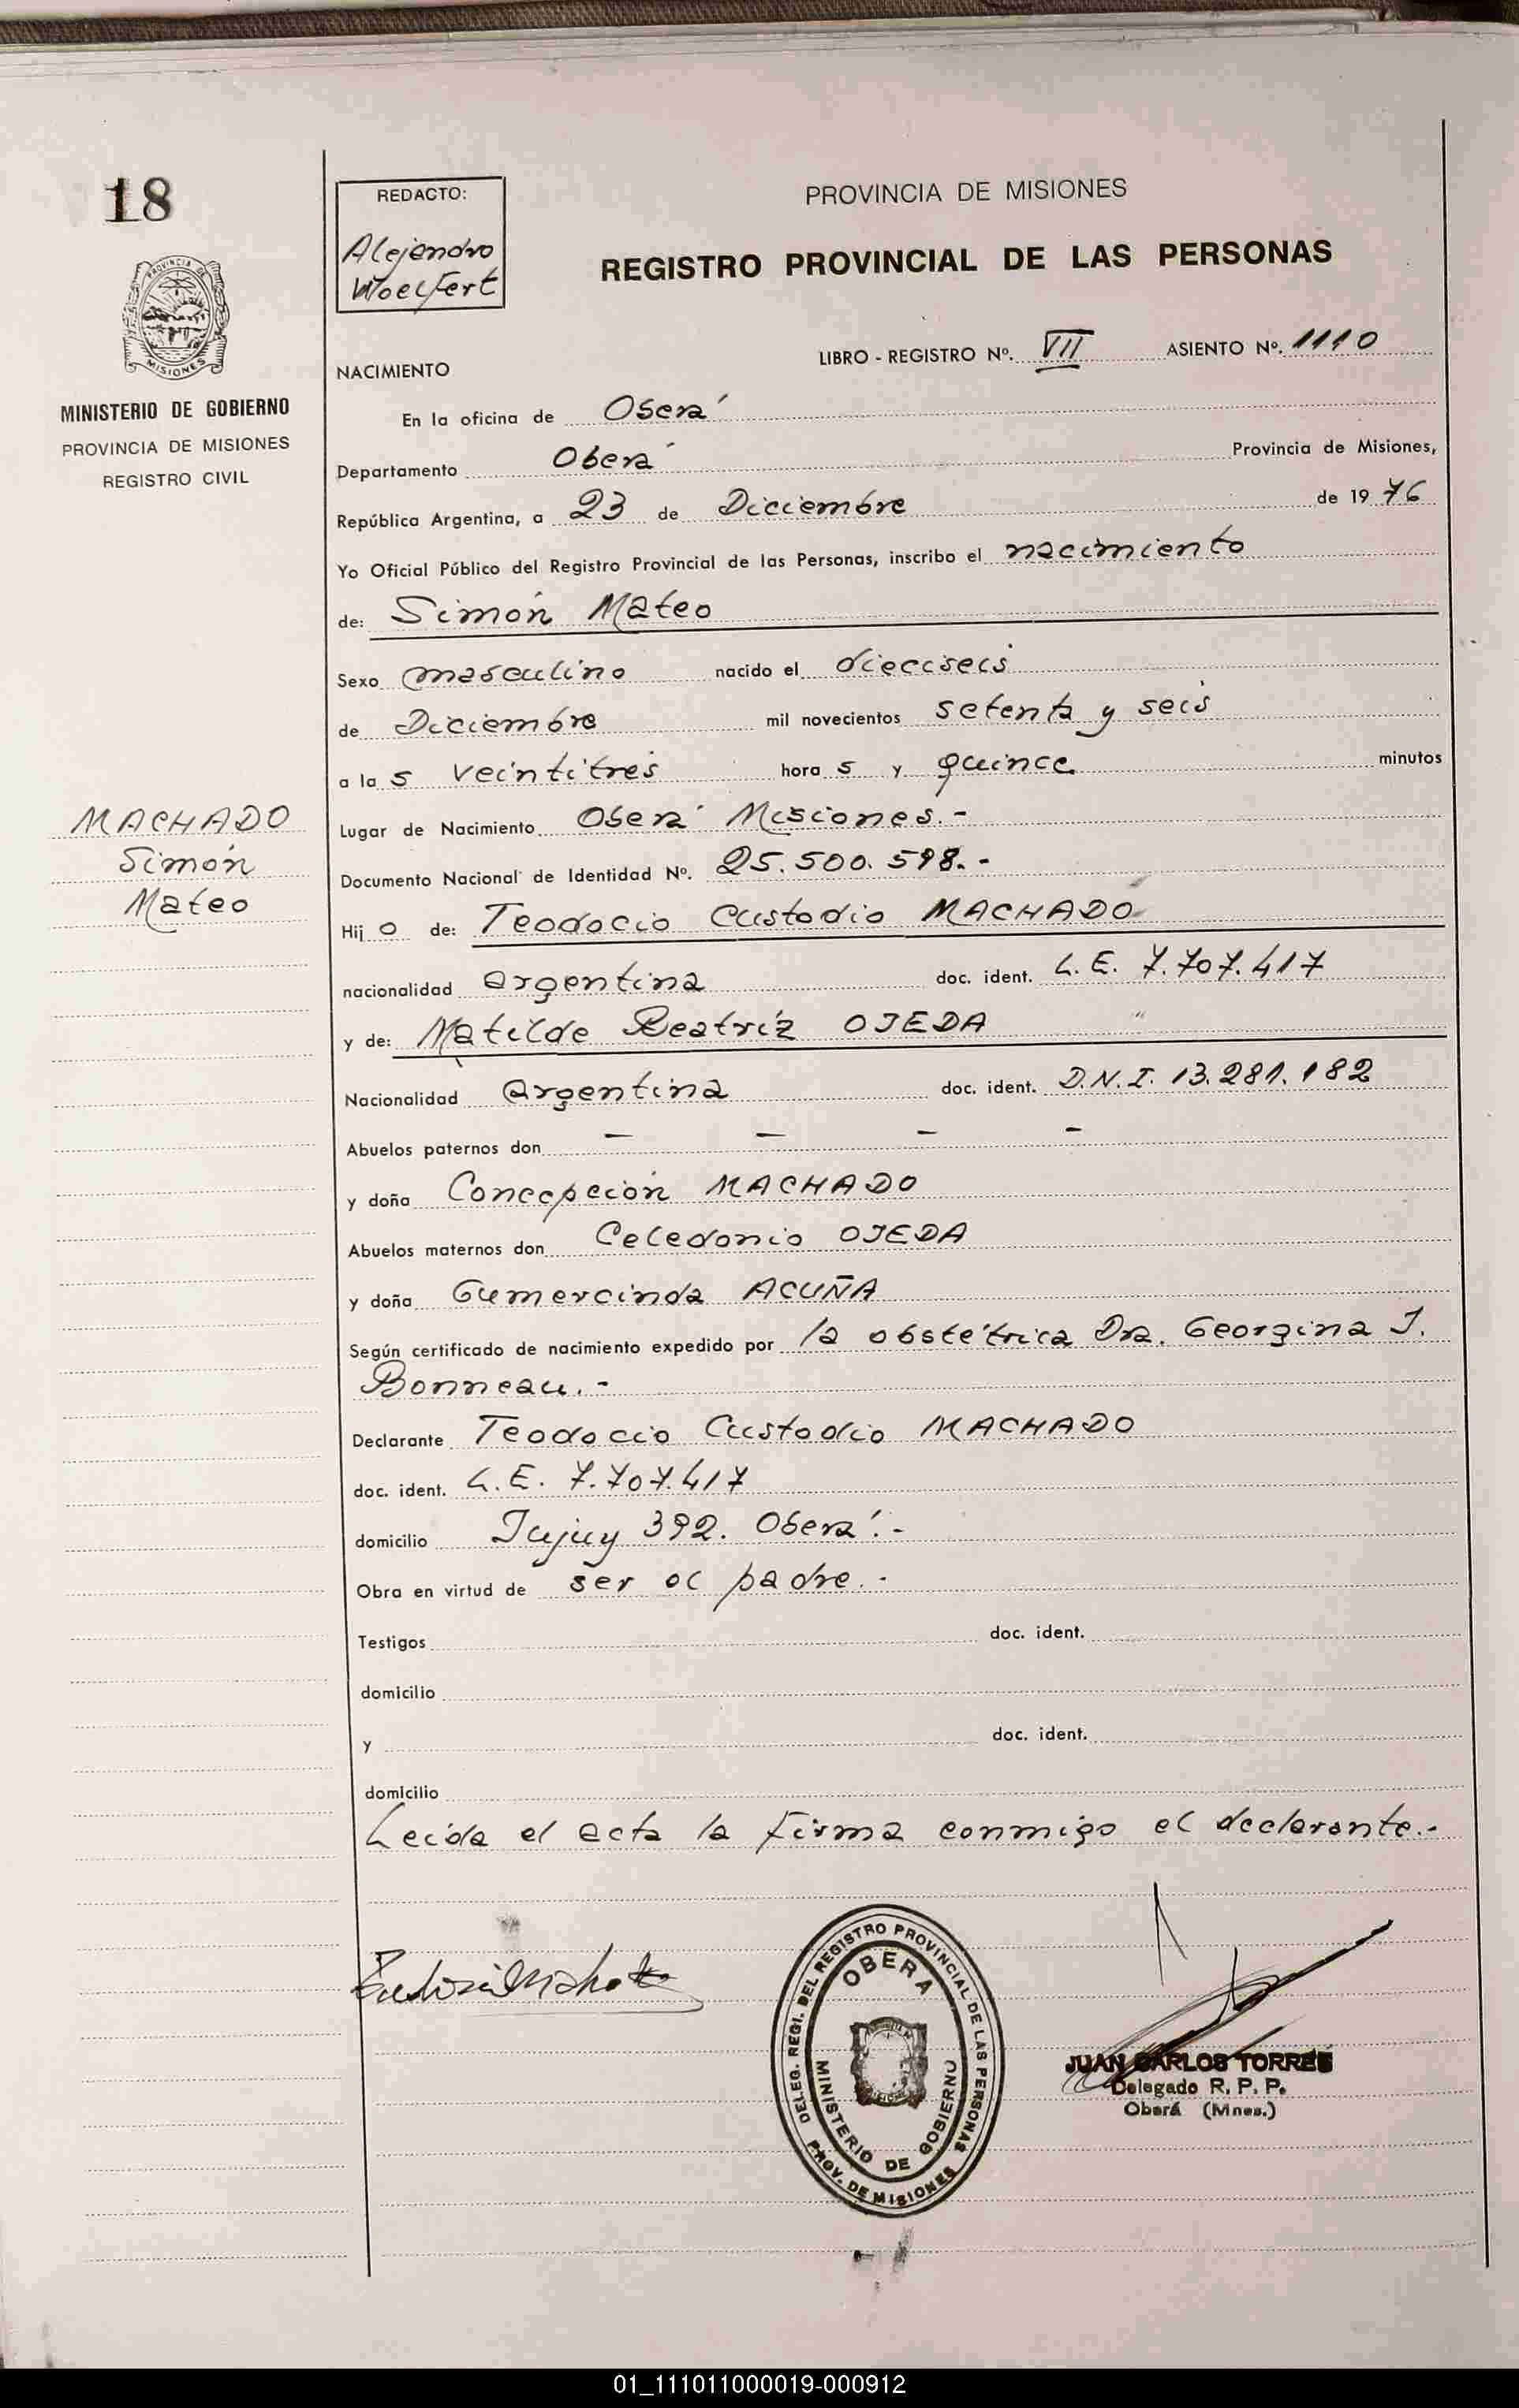 18
REDACTO:
Alejandro
Woelfert
PROVINCIA DE MISIONES
REGISTRO PROVINCIAL DE LAS PERSONAS
MINISTERIO DE GOBIERNO
PROVINCIA DE MISIONES
REGISTRO CIVIL
LIBRO - REGISTRO Nº. VII ASIENTO Nº. 1110
NACIMIENTO
En la oficina de Oberá
Departamento Oberá Provincia de Misiones,
República Argentina, a 23 de Diciembre de 1976
Yo Oficial Público del Registro Provincial de las Personas, inscribo el nacimiento
de: Simón Mateo
Sexo masculino nacido el dieciseis
de Diciembre mil novecientos setenta y seis
a la s veintitres hora s y quince minutos
Lugar de Nacimiento Oberá Misiones.-
MACHADO
Simón
Mateo
Documento Nacional de Identidad Nº. 25.500.598.-
Hijo de: Teodocio Custodio MACHADO
nacionalidad argentina doc. ident. L.E. 7.707.417
y de: Matilde Beatríz OJEDA
Nacionalidad argentina doc. ident. D.N.I. 13.281.182
Abuelos paternos don — — — —
y doña Concepción MACHADO
Abuelos maternos don Celedonio OJEDA
y doña Gumercinda ACUÑA
Según certificado de nacimiento expedido por la obstétrica Dra. Georgina J.
Bonneau.-
Declarante Teodocio Custodio MACHADO
doc. ident. L.E. 7.707.417
domicilio Jujuy 392. Oberá.-
Obra en virtud de ser el padre.-
Testigos doc. ident.
domicilio
y doc. ident.
domicilio
Leida el acta la firma conmigo el declarante.-
DELEG. REGI. DEL REGISTRO PROVINCIAL DE LAS PERSONAS
OBERA
MINISTERIO DE GOBIERNO
PROV. DE MISIONES
JUAN CARLOS TORRES
Delegado R. P. P.
Oberá (Mnes.)
01_111011000019-000912